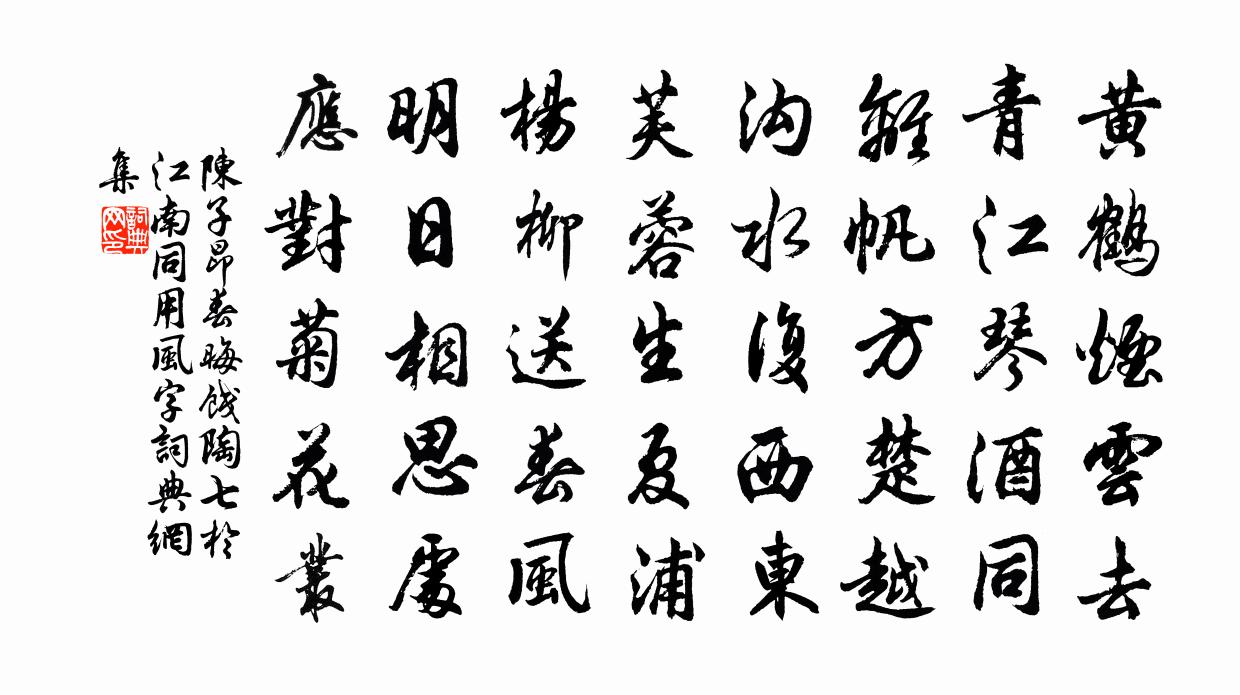 黄鶴煙雲去
青江琴酒同
離帆方楚越
溝水復西東
芙蓉生夏浦
楊柳送春風
明日相思處
應對菊花叢
陳子昂春晦餞陶七於
江南同用風字詞典網
集
詞典網印